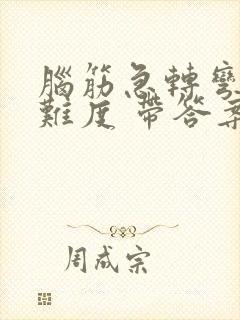 腦筋急轉彎
難度 帶答案
周成宗